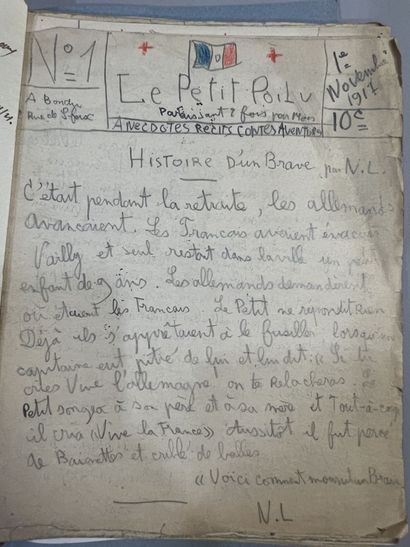 No 1
Le Petit Poilu
1e Novembre 1917
10c
A Bondy
Rue de
Paraissant 2 fois par Mois
ANECDOTES RECITS CONTES AVENTURES
HISTOIRE D'UN BRAVE par N.L.
C'était pendant la retraite, les allemands
avancaient. Les Francais avaient évacué
Vailly et seul restait dans la ville un
enfant de 9 ans. Les allemands demandèrent
où étaient les Francais Le Petit ne repondit Rien
Déjà ils s'apprêtaient à le fusiller lorsqu'un
capitaine eut pitié de lui et lui dit: (( Si tu
cries Vive l'allemagne, on te Relacheras. Le
Petit songea à son père et à sa mère et Tout-à-coup
il cria (Vive la France>> Aussitot il fut percé
de Baionettes et criblé de balles
<< Voici comment mourut un Brave
N.L